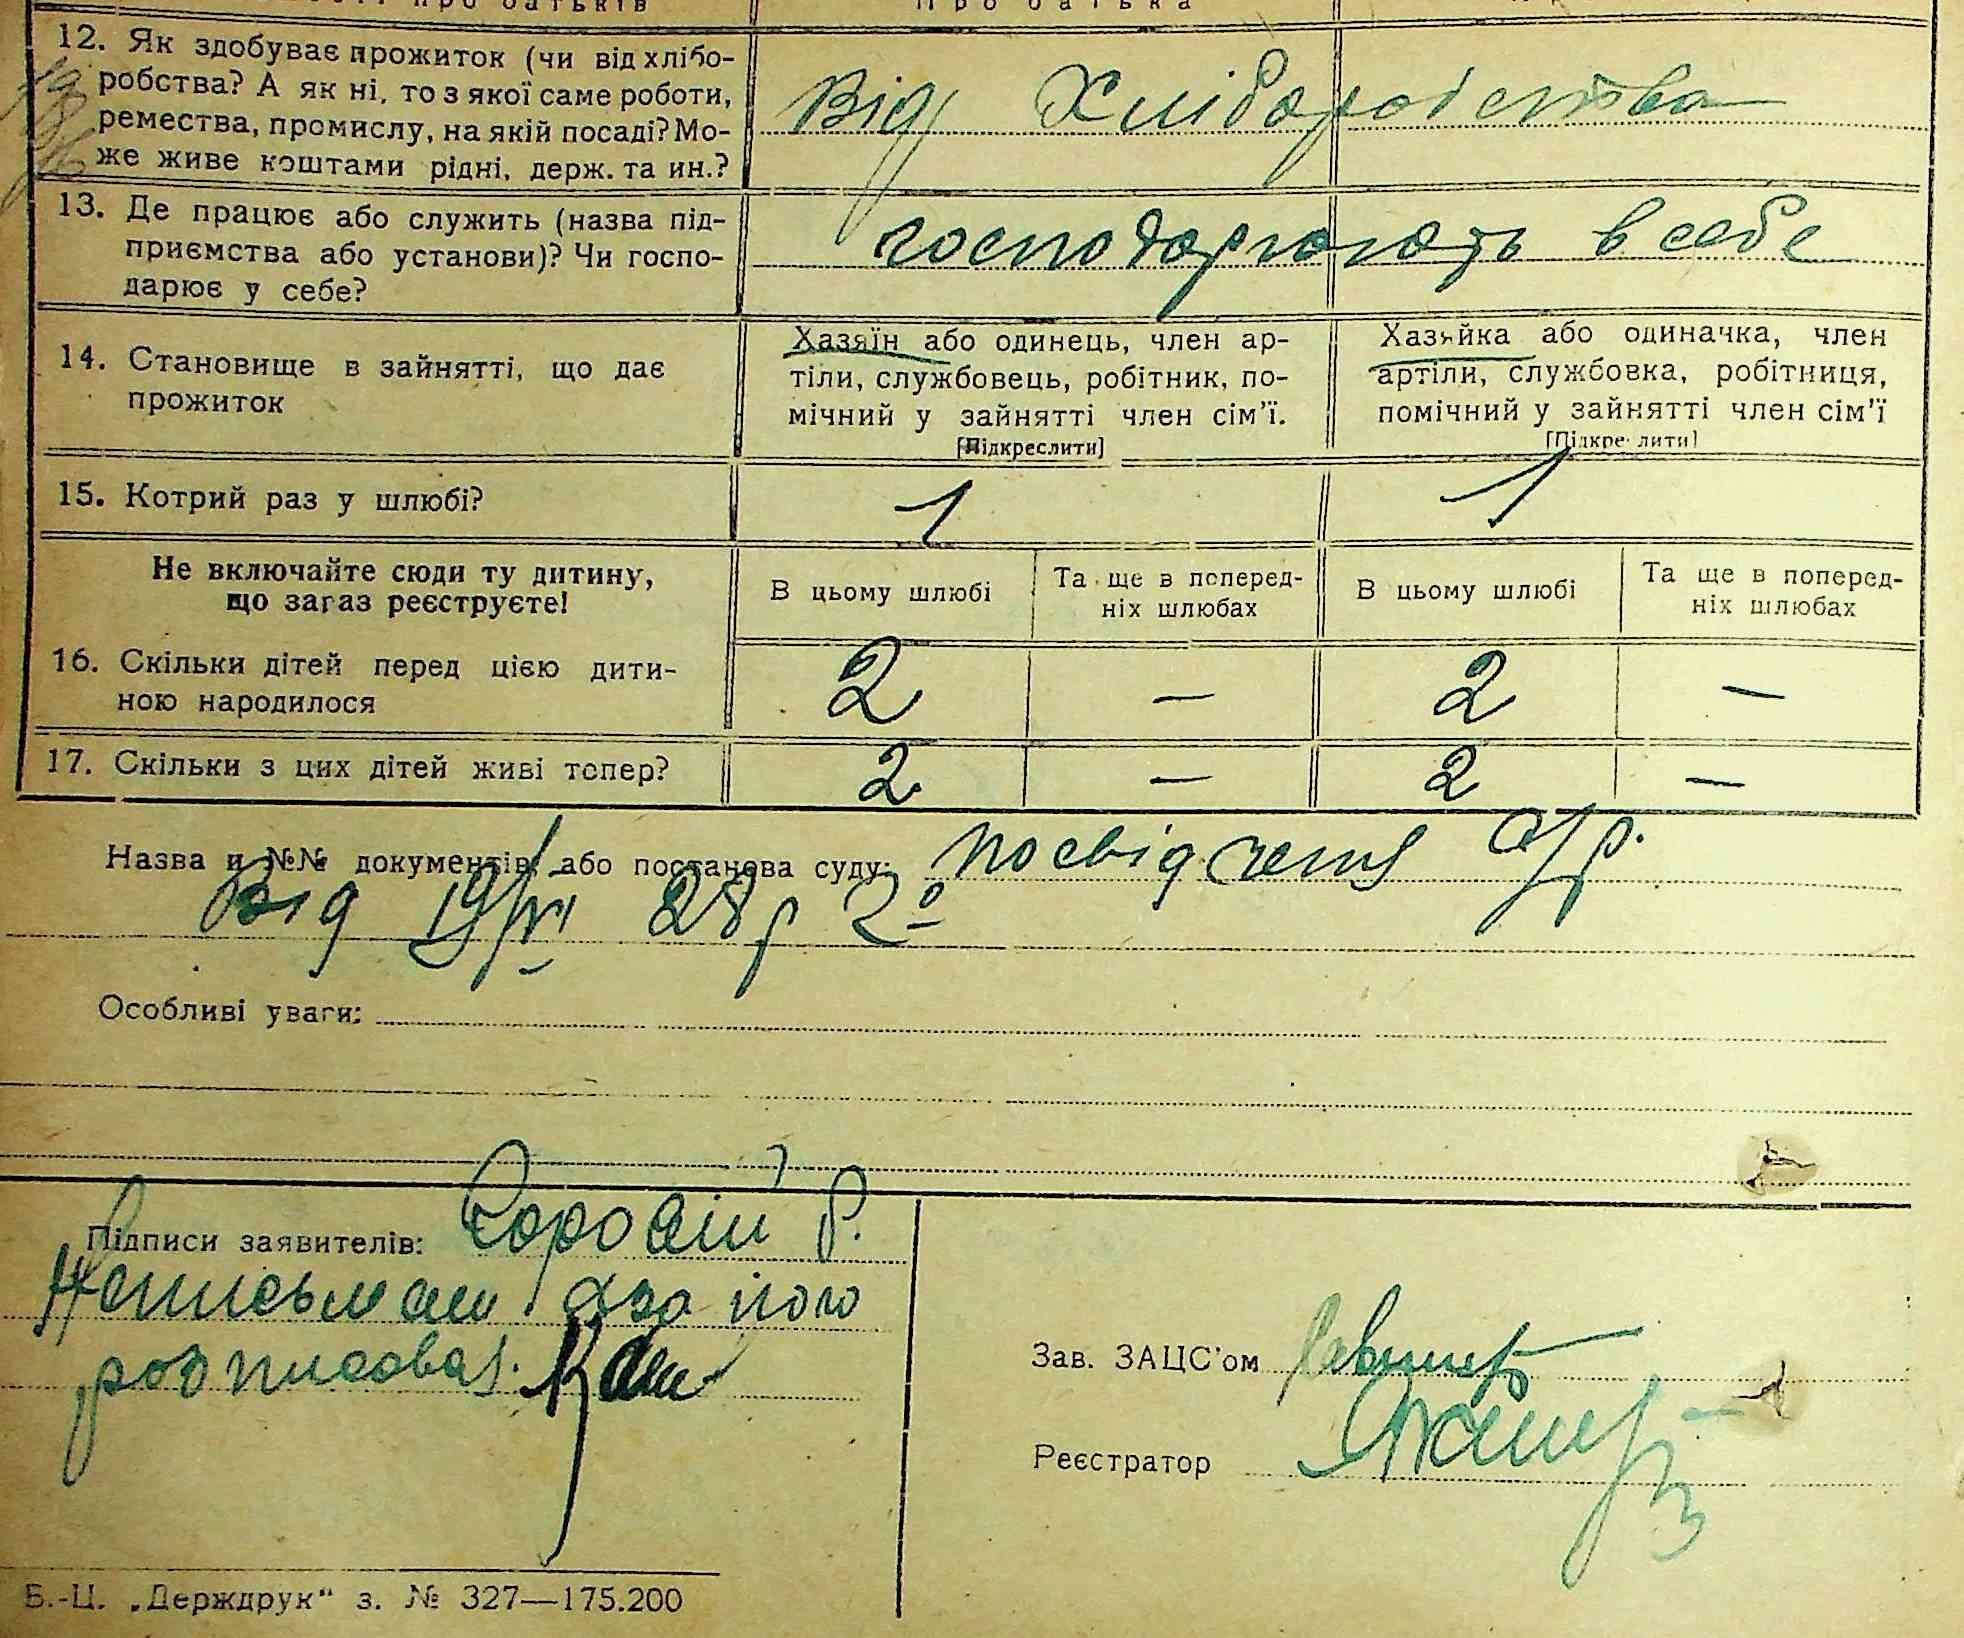 12. Як здобуває прожиток (чи від хлібо-
робства? А як ні, то з якої саме роботи,
ремества, промислу, на якій посаді? Мо-
же живе коштами рідні, держ. та ин.?
Від Хліборобства
13. Де працює або служить (назва під-
приємства або установи)? Чи госпо-
дарює у себе?
господарюють в себе
14. Становище в зайнятті, що дає
прожиток
Хазяїн або одинець, член ар-
тіли, службовець, робітник, по-
мічний у зайнятті член сім'ї.
[Підкреслити]
Хазяйка або одиначка, член
артіли, службовка, робітниця,
помічний у зайнятті член сім'ї
[Підкреслити]
15. Котрий раз у шлюбі?
1 1
Не включайте сюди ту дитину,
що загаз реєструєте!
В цьому шлюбі
Та ще в поперед-
ніх шлюбах
В цьому шлюбі
Та ще в поперед-
ніх шлюбах
16. Скільки дітей перед цією дити-
ною народилося
2 — 2 —
17. Скільки з цих дітей живі тепер?
2 — 2 —
Назва и №№ документів або постанова суду: посвідченя с/р.
Від 19/VI 28р 2º
Особливі уваги:
Підписи заявителів:
Неписьмен а за його
розписовал.
Зав. ЗАЦС'ом
Реєстратор
Б.-Ц. „Держдрук“ з. № 327—175.200